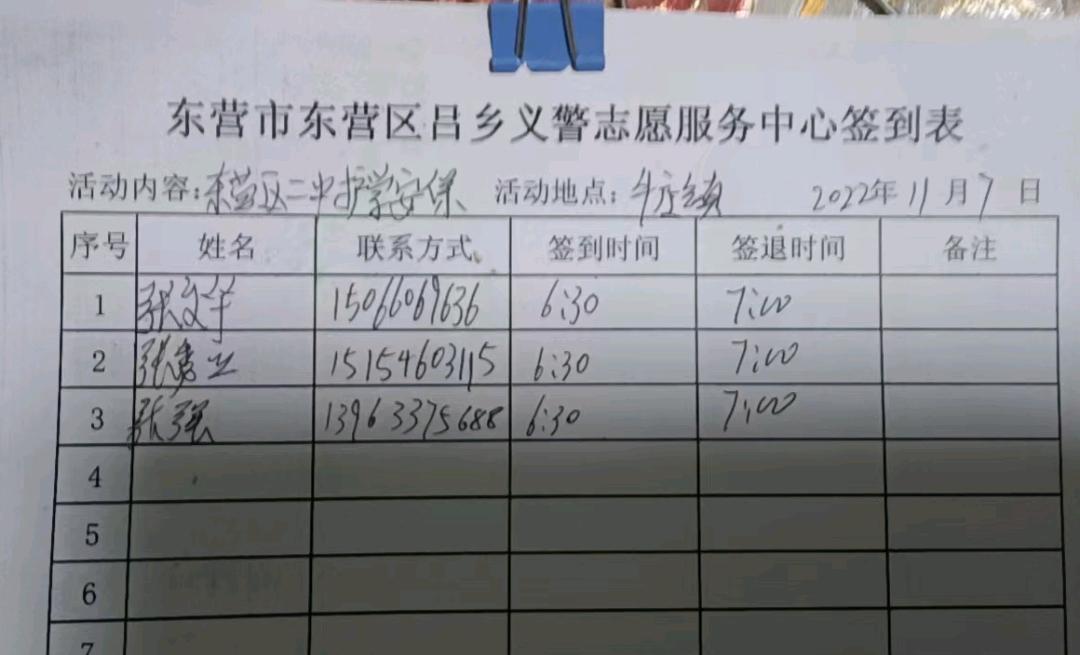 东营市东营区吕乡义警志愿服务中心签到表
活动内容:东营区二中护学安保 活动地点:牛庄镇 2022年11月7日
序号 姓名 联系方式 签到时间 签退时间 备注
1 张文华 15066069636 6:30 7:00
2 张 15154603115 6:30 7:00
3 张强 13963375688 6:30 7:00
4
5
6
7